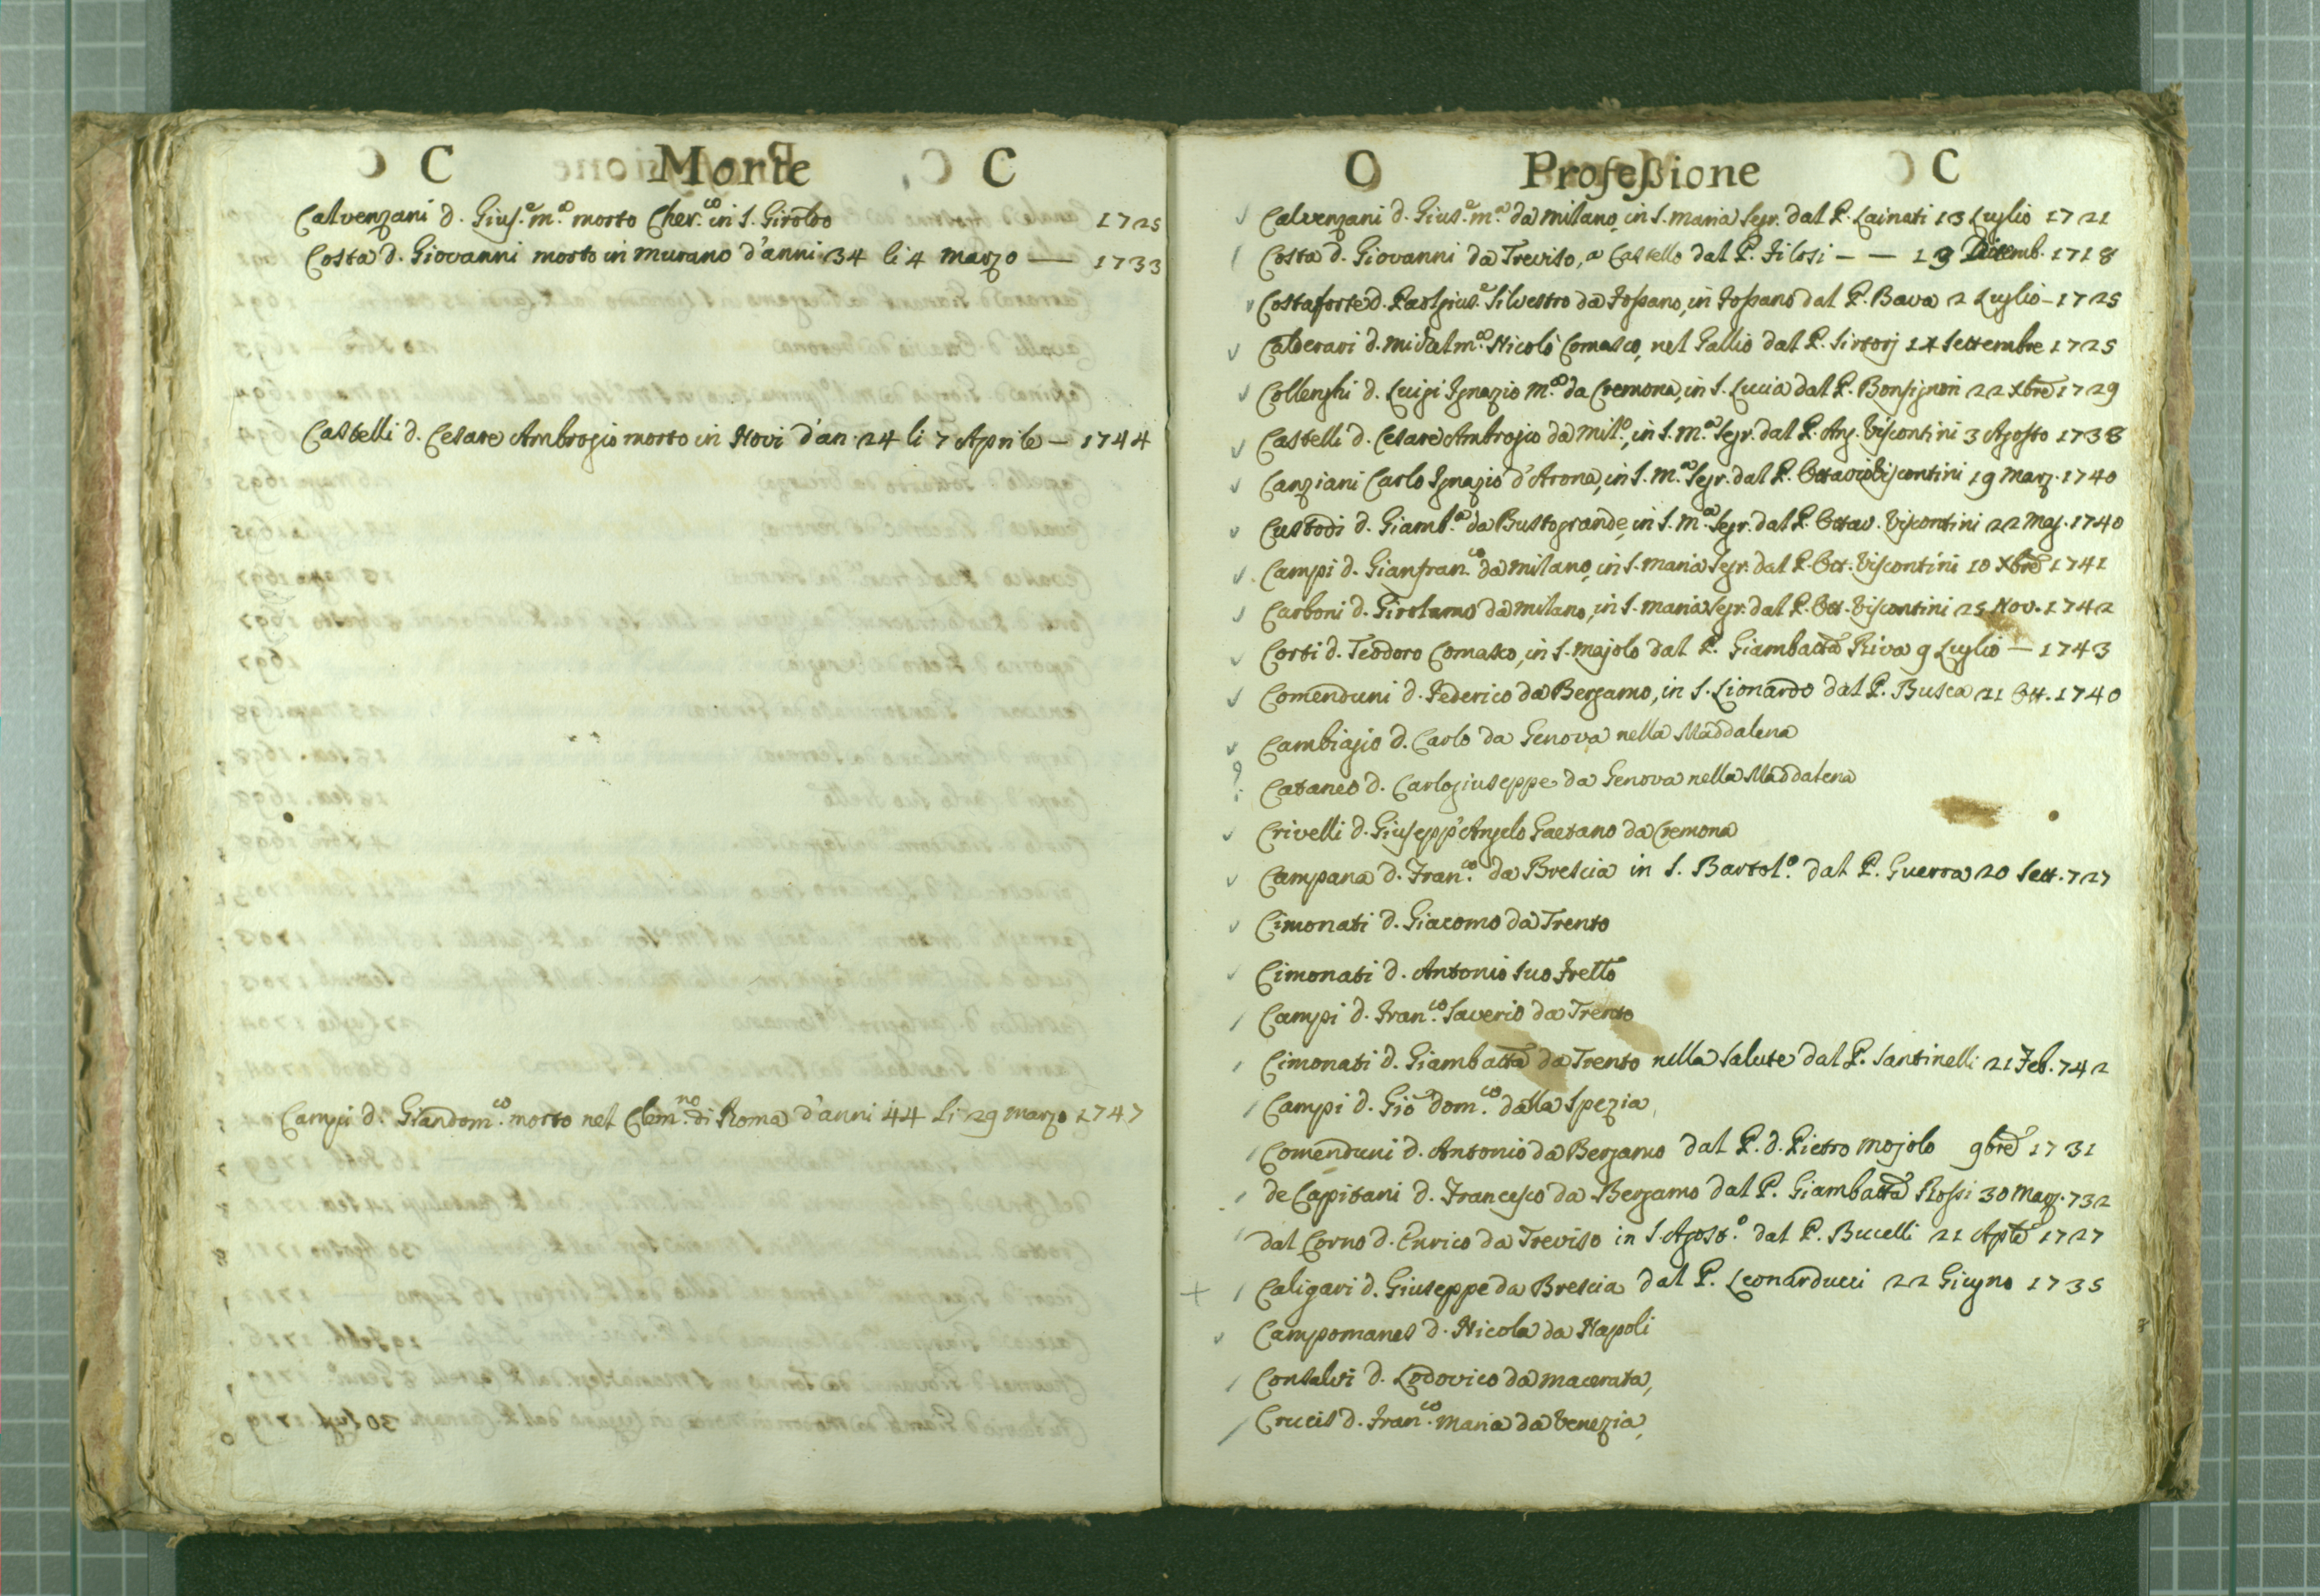 C Morte C
Calvenzani d. Gius.e m.a morto Cher.co in S. Giroldo 1725
Costa d. Giovanni morto in Murano d'anni 34 li 4 Marzo — 1733
Castelli d. Cesare Ambrogio morto in Novi d'an. 24 li 7 Aprile — 1744
Campi d. Giandom.co morto nel Clem.no di Roma d'anni 44 li 29 Marzo 1747
C Professione C
Calvenzani d. Gius.e m.a da Milano, in S. Maria Segr. dal P. Lainati 13 Luglio 1721
Costa d. Giovanni da Treviso, a Castello dal P. Filosi — — 19 Dicemb. 1718
Costaforte d. Paolgius.e Silvestro da Fossano, in Fossano dal P. Bava 2 Luglio — 1725
Calderari d. Michelm.a Nicolò Comasco, nel Gallio dal P. Sirtorj 14 Settembre 1725
Collenghi d. Luigi Ignazio M.a da Cremona, in S. Lucia dal P. Bonsignori 22 Xbre 1729
Castelli d. Cesare Ambrogio da Mil.o, in S. M.a Segr. dal P. Ang. Viscontini 3 Agosto 1738
Canziani Carlo Ignazio d'Arona, in S. M.a Segr. dal P. Ottavio Viscontini 19 Marz. 1740
Custodi d. Giamb.a da Bustogrande, in S. M.a Segr. dal P. Ottav. Viscontini 22 Mag. 1740
Campi d. Gianfran.co da Milano, in S. Maria Segr. dal P. Ott. Viscontini 10 Xbre 1741
Carboni d. Girolamo da Milano, in S. Maria Segr. dal P. Ott. Viscontini 25 Nov. 1742
Corti d. Teodoro Comasco, in S. Majolo dal P. Giambatta Riva 9 Luglio — 1743
Comenduni d. Federico da Bergamo, in S. Lionardo dal P. Busca 21 Ott. 1740
Cambiagio d. Carlo da Genova nella Maddalena
? Cataneo d. Carlogiuseppe da Genova nella Maddalena
Crivelli d. Giusepp'Angelo Gaetano da Cremona
Campana d. Fran.co da Brescia in S. Bartol.o dal P. Guerra 20 Sett. 727
Cimonati d. Giacomo da Trento
Cimonati d. Antonio suo Frello
Campi d. Fran.co Saverio da Trento
Cimonati d. Giambatta da Trento nella Salute dal P. Santinelli 21 Feb. 742
Campi d. Gio dom.co dalla Spezia
Comenduni d. Antonio da Bergamo dal P. d. Pietro Mojolo 9bre 1731
de Capitani d. Francesco da Bergamo dal P. Giambatta Rossi 30 Marz. 732
dal Corno d. Enrico da Treviso in S. Agost.o dal P. Bucelli 21 Aple 1727
+ Caligari d. Giuseppe da Brescia dal P. Leonarducci 22 Giugno 1735
Campomanes d. Nicola da Napoli
Consalvi d. Lodovico da Macerata,
Crucis d. Fran.co Maria da Venezia,